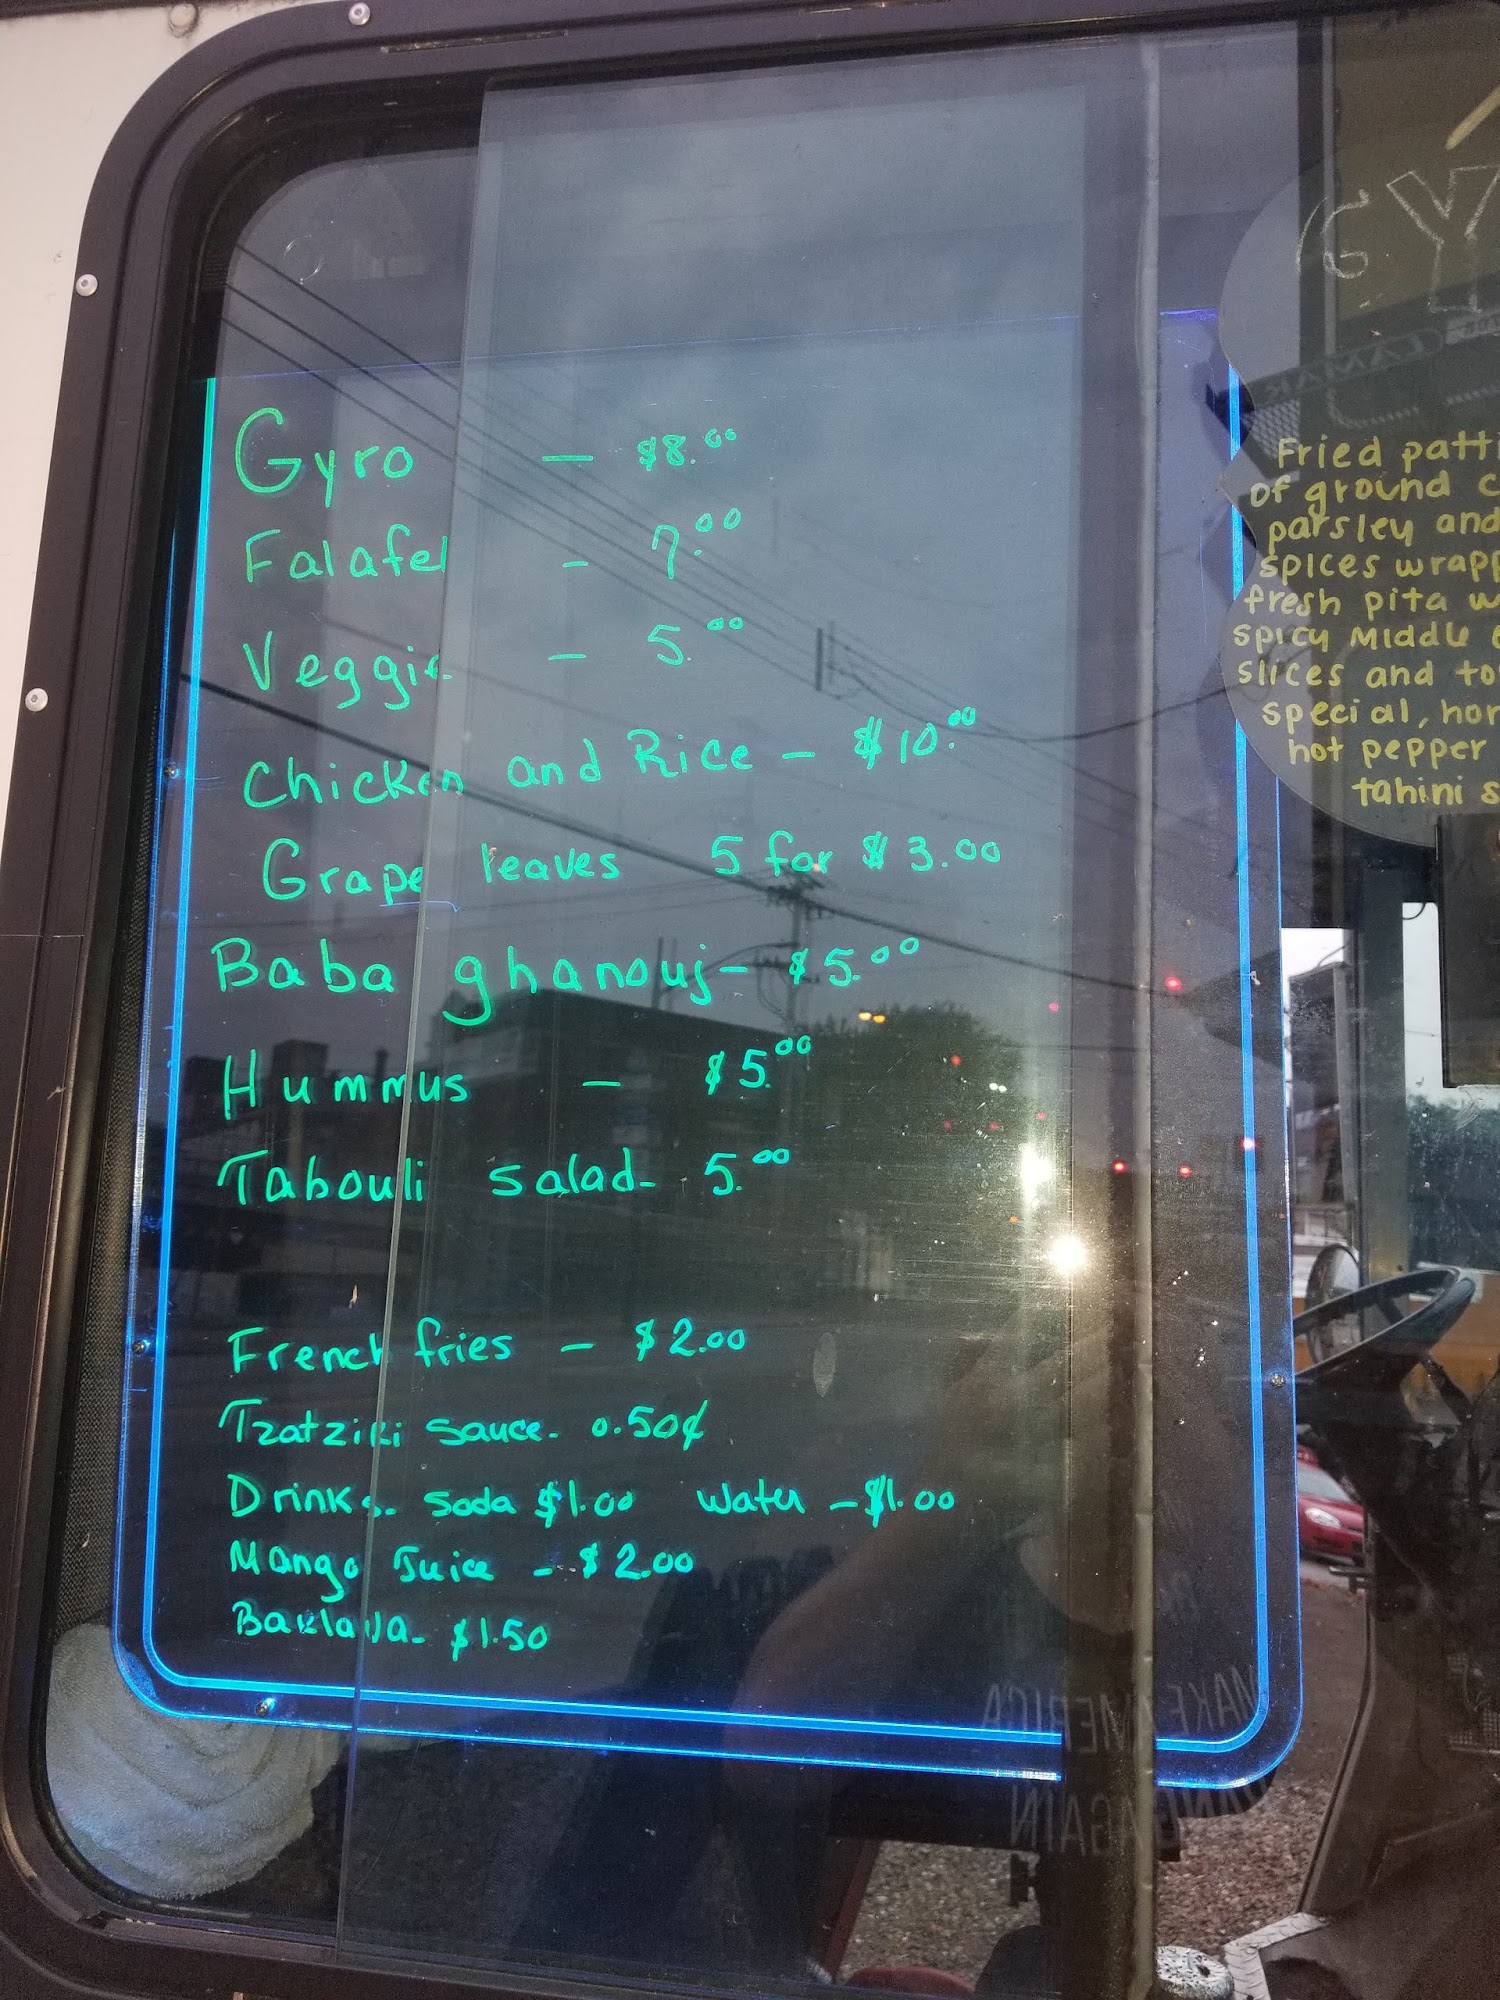 Gyro — $8.00
Falafel - 7.00
Veggie - 5.00
Chicken and Rice - $10.00
Grape leaves 5 for $3.00
Baba ghanouj - $5.00
Hummus - $5.00
Tabouli salad - 5.00
French fries - $2.00
Tzatziki sauce - 0.50¢
Drinks - Soda $1.00 Water - $1.00
Mango Juice - $2.00
Baklava - $1.50
GY
Fried patti
of ground c
parsley and
spices wrapp
fresh pita w
spicy Middle
slices and to
special, hom
hot pepper
tahini s
LAMAR
MAKE AMERICA
AGAIN